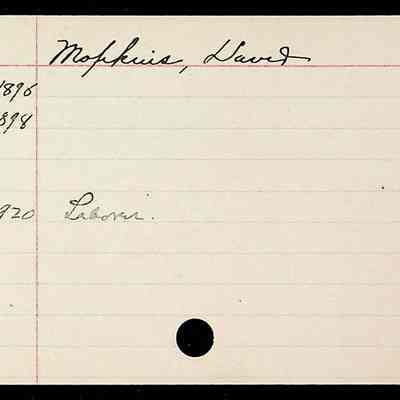 Mopkins, David
1896
1898
1920 Laborer.